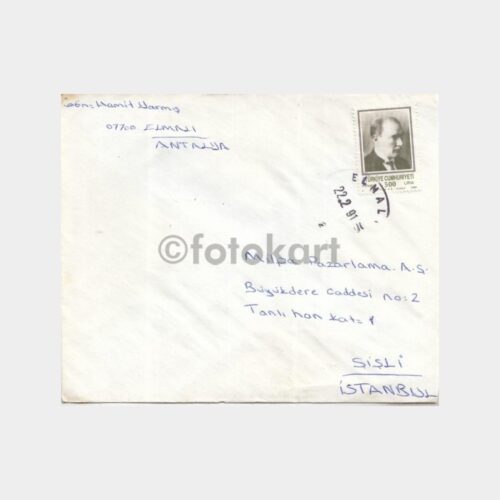 Gön: Hamit Yarmış
07700 ELMALI
ANTALYA
TÜRKİYE CUMHURİYETİ
500 LİRA
ELMALI
22.2.91
©fotokart
Milpa Pazarlama. A.Ş.
Büyükdere caddesi no=2
Tanlı han kat= 1
ŞİŞLİ
İSTANBUL